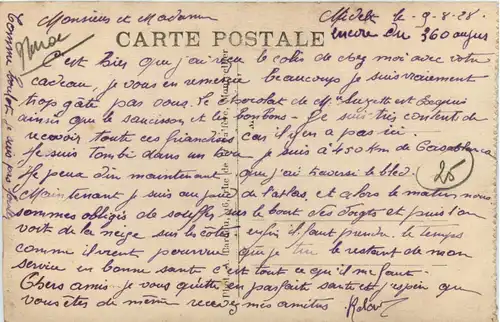 Monsieur et Madame
Midelt le 9-8-28
encore du 360 au jus
CARTE POSTALE
Maroc
C'est hier que j'ai reçu le colis de chez moi avec votre
cadeau, je vous en remercie beaucoup je suis vraiement
trop gâté pas vous. Le chocolat de Mme Suzette et
ainsi que le saucisson, et les bonbons - Je suis très content de
recevoir toute ces friandises car il y en a pas ici.
Je suis tombé dans un trou je suis à 450 Km de Casablanca
Je peux dire maintenant que j'ai traversé le bled.
25
Maintenant je suis au pied de l'atlas, et alors le matin nous
sommes obligés de souffler sur le bout des doigts et puis l'on
voit de la neige sur les côtes enfin il faut prendre le temps
comme il vient pourvu que je tire le restant de mon
service en bonne santé c'est tout ce qu'il me faut.
Chers amis je vous quitte en parfaite santé et j'espère que
vous êtes de même recevez mes amitiés